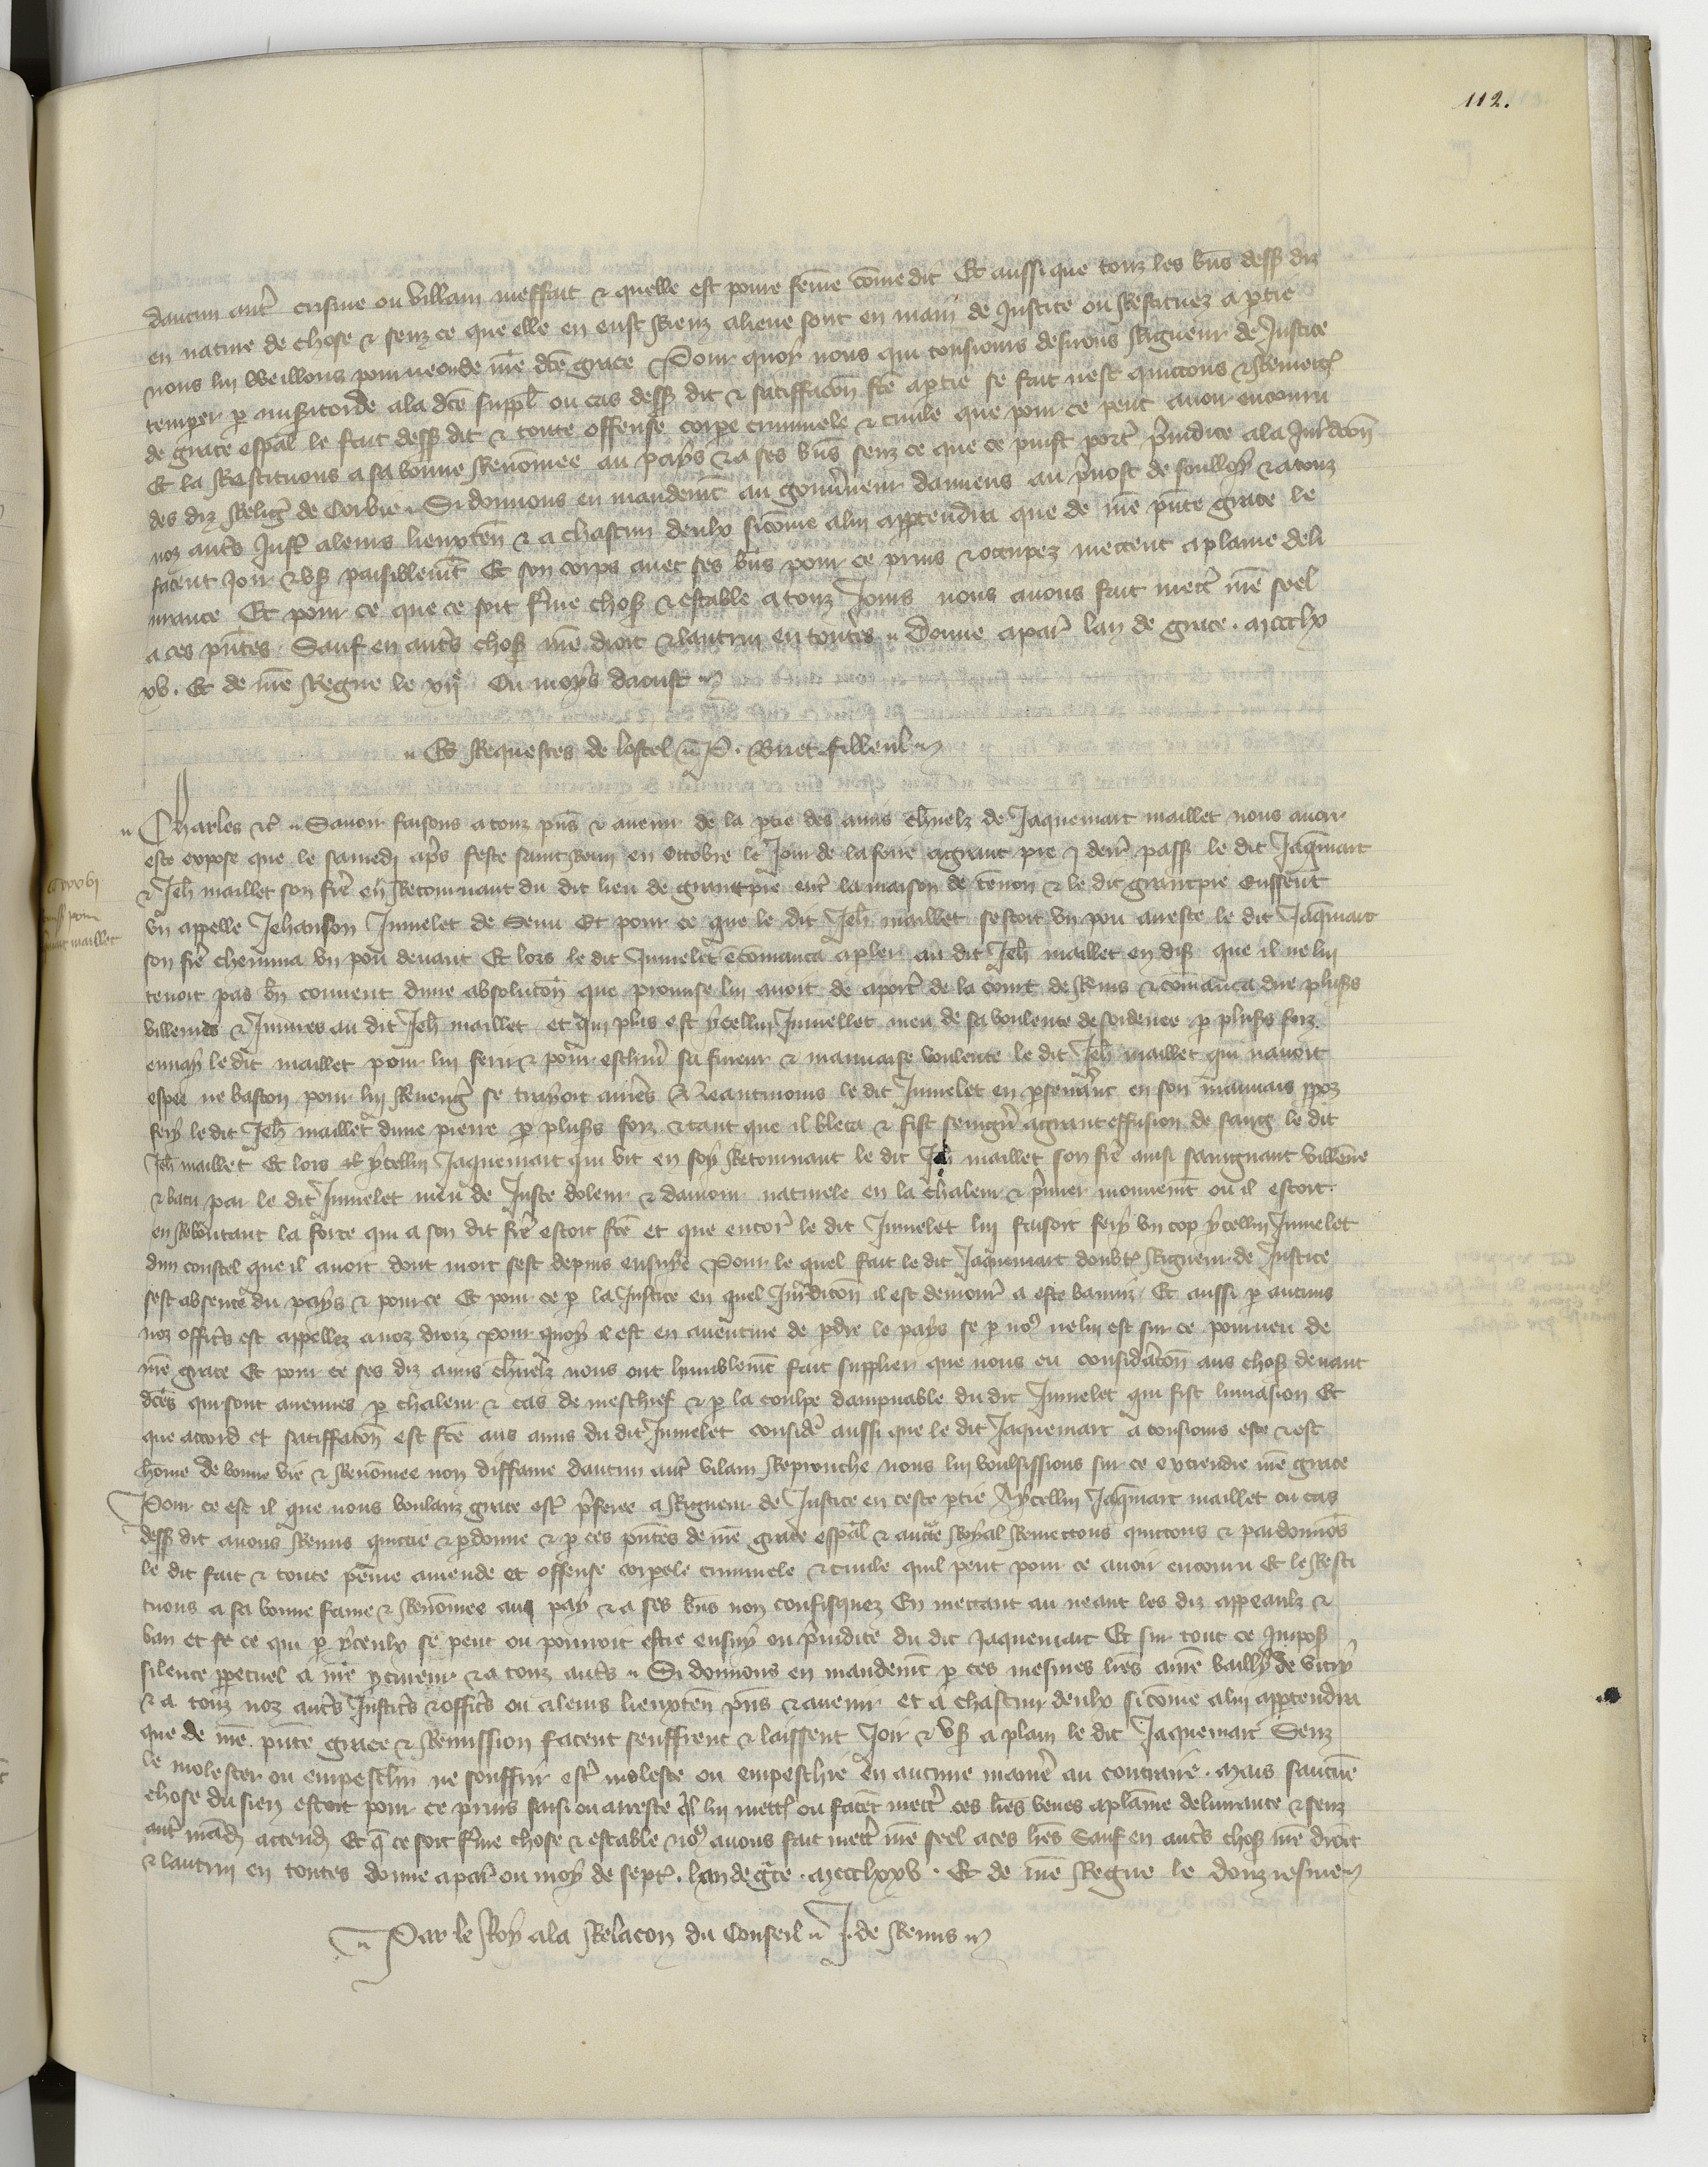 112.
daucun autre crisme ou villain meffait & quelle est poure feme come dit Et aussi que touz les biens dess diz
en nature de chose & senz ce que elle en eust Riens aliene sont en main de Justice ou Restituez a ptie
nous lui weillons pourueoir de nre dce grace Pour quoy nous qui tousiours desirons Rigueur de Justice
temper p misericorde ala dce suppl ou cas dess dit & satiffacon fce a ptie se fait nest quictons & Remett
de grace espal le fait dess dit & toute offense corpe criminele & ciuile que pour ce peut auoir encouru
Et la Restituons a sa bonne Renomee au pays & a ses bns senz ce que ce puist port preiudice ala Juridicon
des diz Relig de Corbie Si donnons en mandemt au gouuneur damiens au preuost de foulloy & a touz
noz autrs Just aleurs lieuxten & a chascun deulx sicome alui appartendra que de nre pnte grace le
facent Joir & vser paisiblemt Et son corps auec ses bns pour ce prins & occupez mettent aplaine deli
urance Et pour ce que ce soit ferme chose & estable a touz Jours nous auons fait mettre nre seel
a ces pntes Sauf en autrs chos nre droit & lautrui en toutes Donne a par lan de grace mccclx
xv. Et de nre Regne le xije Ou moys daoust
Es Requestes de lostel P. Briet filleul
Charles &c Sauoir faisons a touz pns & auenir de la ptie des amis charnelz de Jaquemart maillet nous auoir
este expose que le samedi aprs feste saint Remi en Octobre le Jour de la foire agrant pre j derr pass le dit Jaqmart
& Jeh maillet son fre en Retournant du dit lieu de grantpre entre la maison de & le dit grantpre eussent
vn appelle Jehanson Jumelet de Senu Et pour ce que le dit Jeh maillet sestoit vn pou arreste le dit Jaqmart
son fre chemina vn pou deuant Et lors le dit Jumelet encomenca a pler au dit Jeh maillet en dis que il ne lui
tenoit pas bn conuent dune absolucon que promise lui auoit de aporter de la court de Reins & comanca dire pluss
villenies & Iniures au dit Jeh maillet et qui plus est ycellui Jumellet meu de sa voulente desordenee p pluss foiz
enuay le dit maillet pour lui ferir & pour escheuer sa fureur & mauuaise voulente le dit Jeh maillet qui nauoit
espee ne baston pour lui Reueng se trayoit arriers Neantmoins le dit Jumelet en pseuerant en son mauuais ppoz
fery le dit Jeh maillet dune pierre p pluss foiz & tant que il bleca & fist seingner agrant effusion de sang le dit
Jeh maillet Et lors ycellui Jaquemart qui vit en soy Retournant le dit Jeh maillet son fre ainsi saingnant villene
& batu par le dit Jumelet meu de Juste doleur & damour naturele en la chaleur & primer mouuemt ou il estoit
en Reboutant la force qui a son dit frere estoit fce et que encor le dit Jumelet lui faisoit fery vn cop ycellui Jumelet
dun coustel que il auoit dont mort sest depuis ensuye Pour le quel fait le dit Jaquemart doubt Rigueur de Justice
sest absente du pays & pour ce Et pour ce p la Justice en quel Juridicon il est demour a este banniz Et aussi p aucuns
noz offics est appellez a noz droiz pour quoy il est en auenture de pdre le pays se p nous ne lui est sur ce pourueu de
nre grace Et pour ce ses diz amis charnelz nous ont humblemt fait supplier que nous eu consideracon aus chos deuant
dces qui sont auenues p chaleur & cas de meschief & p la coulpe dampnable du dit Jumelet qui fist linuasion Et
que accord et satiffacon est fce aus amis du dit Jumelet consider aussi que le dit Jaquemart a tousiours este & est
home de bonne vie & Renomee non diffame daucun autre vilain Reprouche nous lui voulsissions sur ce extendre nre grace
Pour ce est il que nous voulanz grace estre preferee a Rigueur de Justice en ceste ptie A ycellui Jaqmart maillet ou cas
dess dit auons Remis quictie & pdonne & p ces pntes de nre grace espal & aucte Royal Remettons quictons & pardonnos
le dit fait & toute peine amende et offense corpele criminele & ciuile quil peut pour ce auoir encouru Et le Resti
tuons a sa bonne fame & Renomee au pay & a ses bns non confisquez En mettant au neant les diz appeaulx &
ban et se ce qui p yceulx se peut ou pourroit estre ensuy ou preiudice du dit Jaquemart Et sur tout ce Impos
silence ppetuel a nre pcureur & a touz autrs Si donnons en mandemt p ces mesmes lres au nre bailly de vitry
& a touz noz autrs Justics & offics ou aleurs lieuxten pns & auenir et a chascun deulx si come alui appartendra
que de nre pnte grace & Remission facent seuffrent & laissent Joir & vser a plain le dit Jaquemart Senz
le molester ou empeschier ne souffrir estre moleste ou empeschie en aucune manre au contraire. Mais saucune
chose du sien estoit pour ce prins saisi ou arreste ql lui mett ou facet mettr ces lres veues aplaine deliurance & senz
autre mand attend Et q ce soit ferme chose & estable nous auons fait mettr nre seel a ces lres Sauf en autrs chos nre droit
& lautrui en toutes donne a par ou moy de sept. Lan de gce. mccclxxv. Et de nre Regne le douziesme
Par le Roy ala Relacon du Conseil J. de Reims